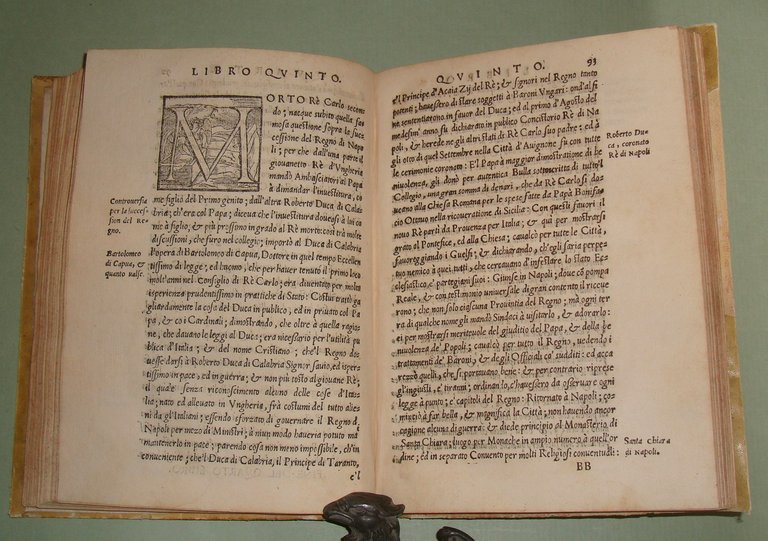 LIBRO QVINTO.
MORTO Rè Carlo secon
do; nacque subito quella fa-
mosa questione sopra la suc
cessione del Regno di Napo
li; per che dall'una parte il
giouanetto Rè d'Vngheria
mandò Ambasciatori al Papa
à dimandar l'inuestitura, co
Controuersia
per la succes-
sion del Re-
gno.
me figlio del Primogenito: dall'altra Roberto Duca di Cala
bria; ch'era col Papa; diceua che l'inuestitura doueasi à lui co
me à figlio, & più prossimo in grado al Rè morto: così trà molte
discussioni, che furo nel collegio; importò al Duca di Calabria
Bartolomeo
di Capua, &
quanto valse.
l'opera di Bartolomeo di Capua, Dottore in quel tempo Eccellen
tissimo di legge: ed huomo, che per hauer tenuto il primo loco
molt'anni nel Consiglio di Rè Carlo; era diuentato per molta
isperienza prudentissimo in prattiche di Stato: Costui trattò ga
gliardamente la cosa del Duca in publico, ed in priuato col Pa
pa, & co i Cardinali; dimostrando, che oltre à quella ragio-
ne, che dauano le leggi al Duca; era necessario per l'utilità pu
blica d'Italia; & del nome Cristiano; che'l Regno do-
uesse darsi à Roberto Duca di Calabria Signor sauio, ed isper-
tissimo in pace, ed in guerra; & non più tosto al giouane Rè,
il qua'e senza riconoscimento alcuno delle cose d'Ita
lia; nato ed alleuato in Vngheria, frà costumi del tutto alie-
ni da gl'Italiani; essendo sforzato di gouernare il Regno di
Napoli per mezo di Ministri; à niun modo haueria potuto mã
mantenerlo in pace; parendo cosa non meno impossibile, ch'in
conueniente; che'l Duca di Calabria, il Principe di Taranto,
e'l
QVINTO.
93
e'l Principe d'Acaia Zij del Rè; & signori nel Regno tanto
potenti; hauessero di stare soggetti à Baroni Vngari: ond'al fi
ne sententiarono in fauor del Duca; ed al primo d'Agosto del
medesim' anno fu dichiarato in publico Concistorio Rè di Na
poli, & herede ne gli altri stati di Rè Carlo suo padre: ed à
Roberto Du-
ca, coronato
Rè di Napoli
gli otto di quel Settembre nella Città d'Auignone fu con tutte
le cerimonie coronato: E'l Papa à maggior dimostratione di be
niuolenza, gli donò per autentica Bulla sottoscritta di tutto'l
Collegio, una gran somma di denari, che da Rè Carlo si do-
ueano alla Chiesa Romana per le spese fatte da Papa Bonifa-
cio Ottauo nella ricoueratione di Sicilia: Con questi fauori il
nouo Rè partì da Prouenza per Italia; & quì per mostrarsi
grato al Pontefice, ed alla Chiesa; caualcò per tutte le Città,
fauoreggiando i Guelfi; & dichiarando, ch'egli saria perpe-
tuo nemico à quei tutti, che cercassero d'infestare lo stato Ec-
clesiastico, e' partegiani suoi: Giunse in Napoli; doue cō pompa
Reale, & con testimonio uniuersale di gran contento il riceue
rono; che non solo ciascuna Prouintia del Regno; mà ogni ter
ra di qualche nome gli mandò Sindaci à visitarlo, & adorarlo:
ei per mostrarsi meriteuole del giuditio del Papa, & della be
niuolenza de' Popoli; caualcò per tutto il Regno, vedendo i
trattamenti de' Baroni, & degli Officiali co' sudditi: ed acca
rezzò quelli, che si portauano bene: & per contrario riprese
gl'ingiusti, e' tiranni; ordinando, c'hauessero da osseruare ogni
legge à punto; e' capitoli del Regno: Ritornato à Napoli; co-
minciò à far bella, & magnifica la Città; non hauendo ancor
cagione alcuna di guerra: & diede principio al Monasterio di
Santa Chiara; luogo per Monache in ampio numero à quell'or
dine; ed in separato Conuento per molti Religiosi conuentuali:
Santa Chiara
di Napoli.
BB